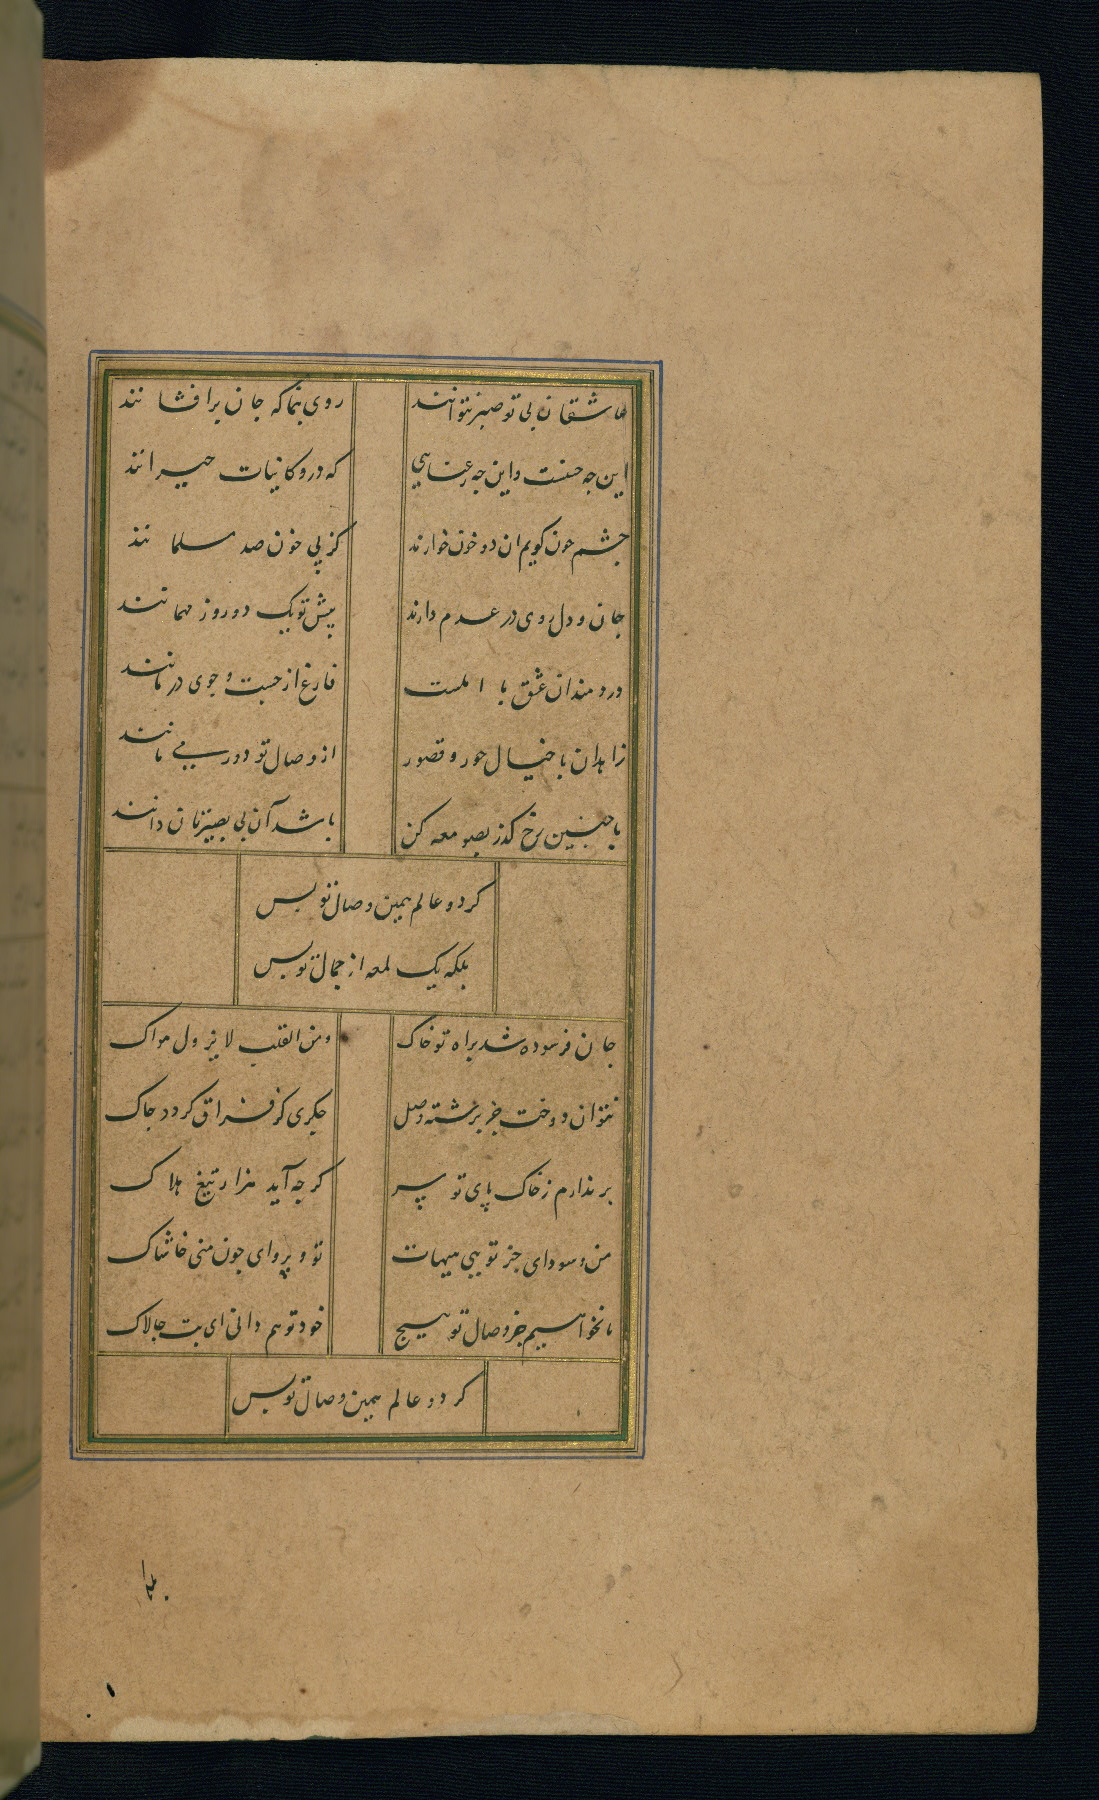 عاشقان بی تو صبر نتوانند روی بنما که جان برافشانند
این چه حسنست واین چه رعنایی که درو کاینات حیرانند
چشم چون کویم ان دو خون خوارند کز پی خون صد مسلمانند
جان و دل روی در عدم دارند پیش تو یک دو روز مهمانند
دردمندان عشق با المت فارغ از جست و جوی درمانند
زاهدان با خیال حور و قصور از وصال تو دور می مانند
با چنین رخ کذر بصومعه کن باشد آن بی بصیرتان دانند
کز دو عالم همین وصال تو بس
بلکه یک لمعه از جمال تو بس
جان فرسوده شد براه تو خاک ومن القلب لا یزول هواک
نتوان دوخت جز برشته وصل جکری کز فراق کردد جاک
بر ندارم ز خاک پای تو سر کر چه آید هزار تیغ هلاک
من و سودای جز تویی هیهات تو و پروای چون منی خاشاک
ما نخواهیم جز وصال تو هیچ خود تو هم دانی ای بت چالاک
کز دو عالم همین وصال تو بس